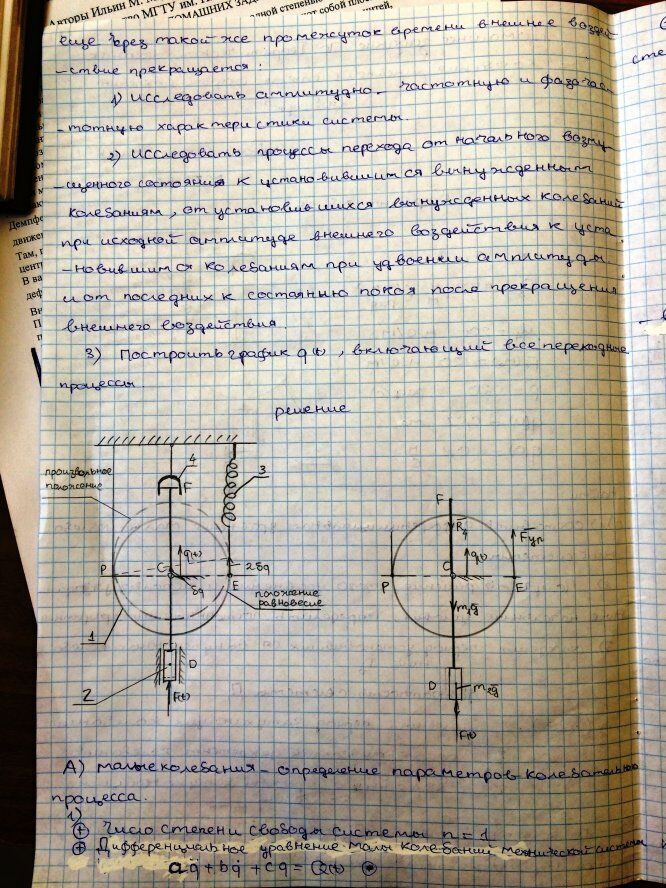 Авторы Ильин М.
МГТУ им.
ДОМАШНИХ ЗАД
одной степенью
еще через такой же промежуток времени внешнее воздей
-ствие прекращается.
1) Исследовать амплитудно- частотную и фазочас
-тотную характеристики системы.
2) Исследовать процессы перехода от начального возму
-щенного состояния к установившимся вынужденным
колебаниям, от установившихся вынужденных колебаний
при исходной амплитуде внешнего воздействия к уста
-новившимся колебаниям при удвоении амплитуды
и от последних к состоянию покоя после прекращения
внешнего воздействия.
3) Построить график q(t), включающий все переходные
процессы.
решение
Демпфе
движе
Там,
центр
В ва
деф
Вн
произвольное
положение
4
F
3
P
C
q(t)
δq
2δq
E
положение
равновесие
1
2
D
F(t)
F
R4
q(t)
Fуп
P
C
E
m1g
D
m2g
F(t)
А) малые колебания - определение параметров колебательного
процесса.
1)
⊕ Число степени свободы системы n = 1
⊕ Дифференциальное уравнение малы колебании механической системы
aq̈ + bq̇ + cq = Q(t)